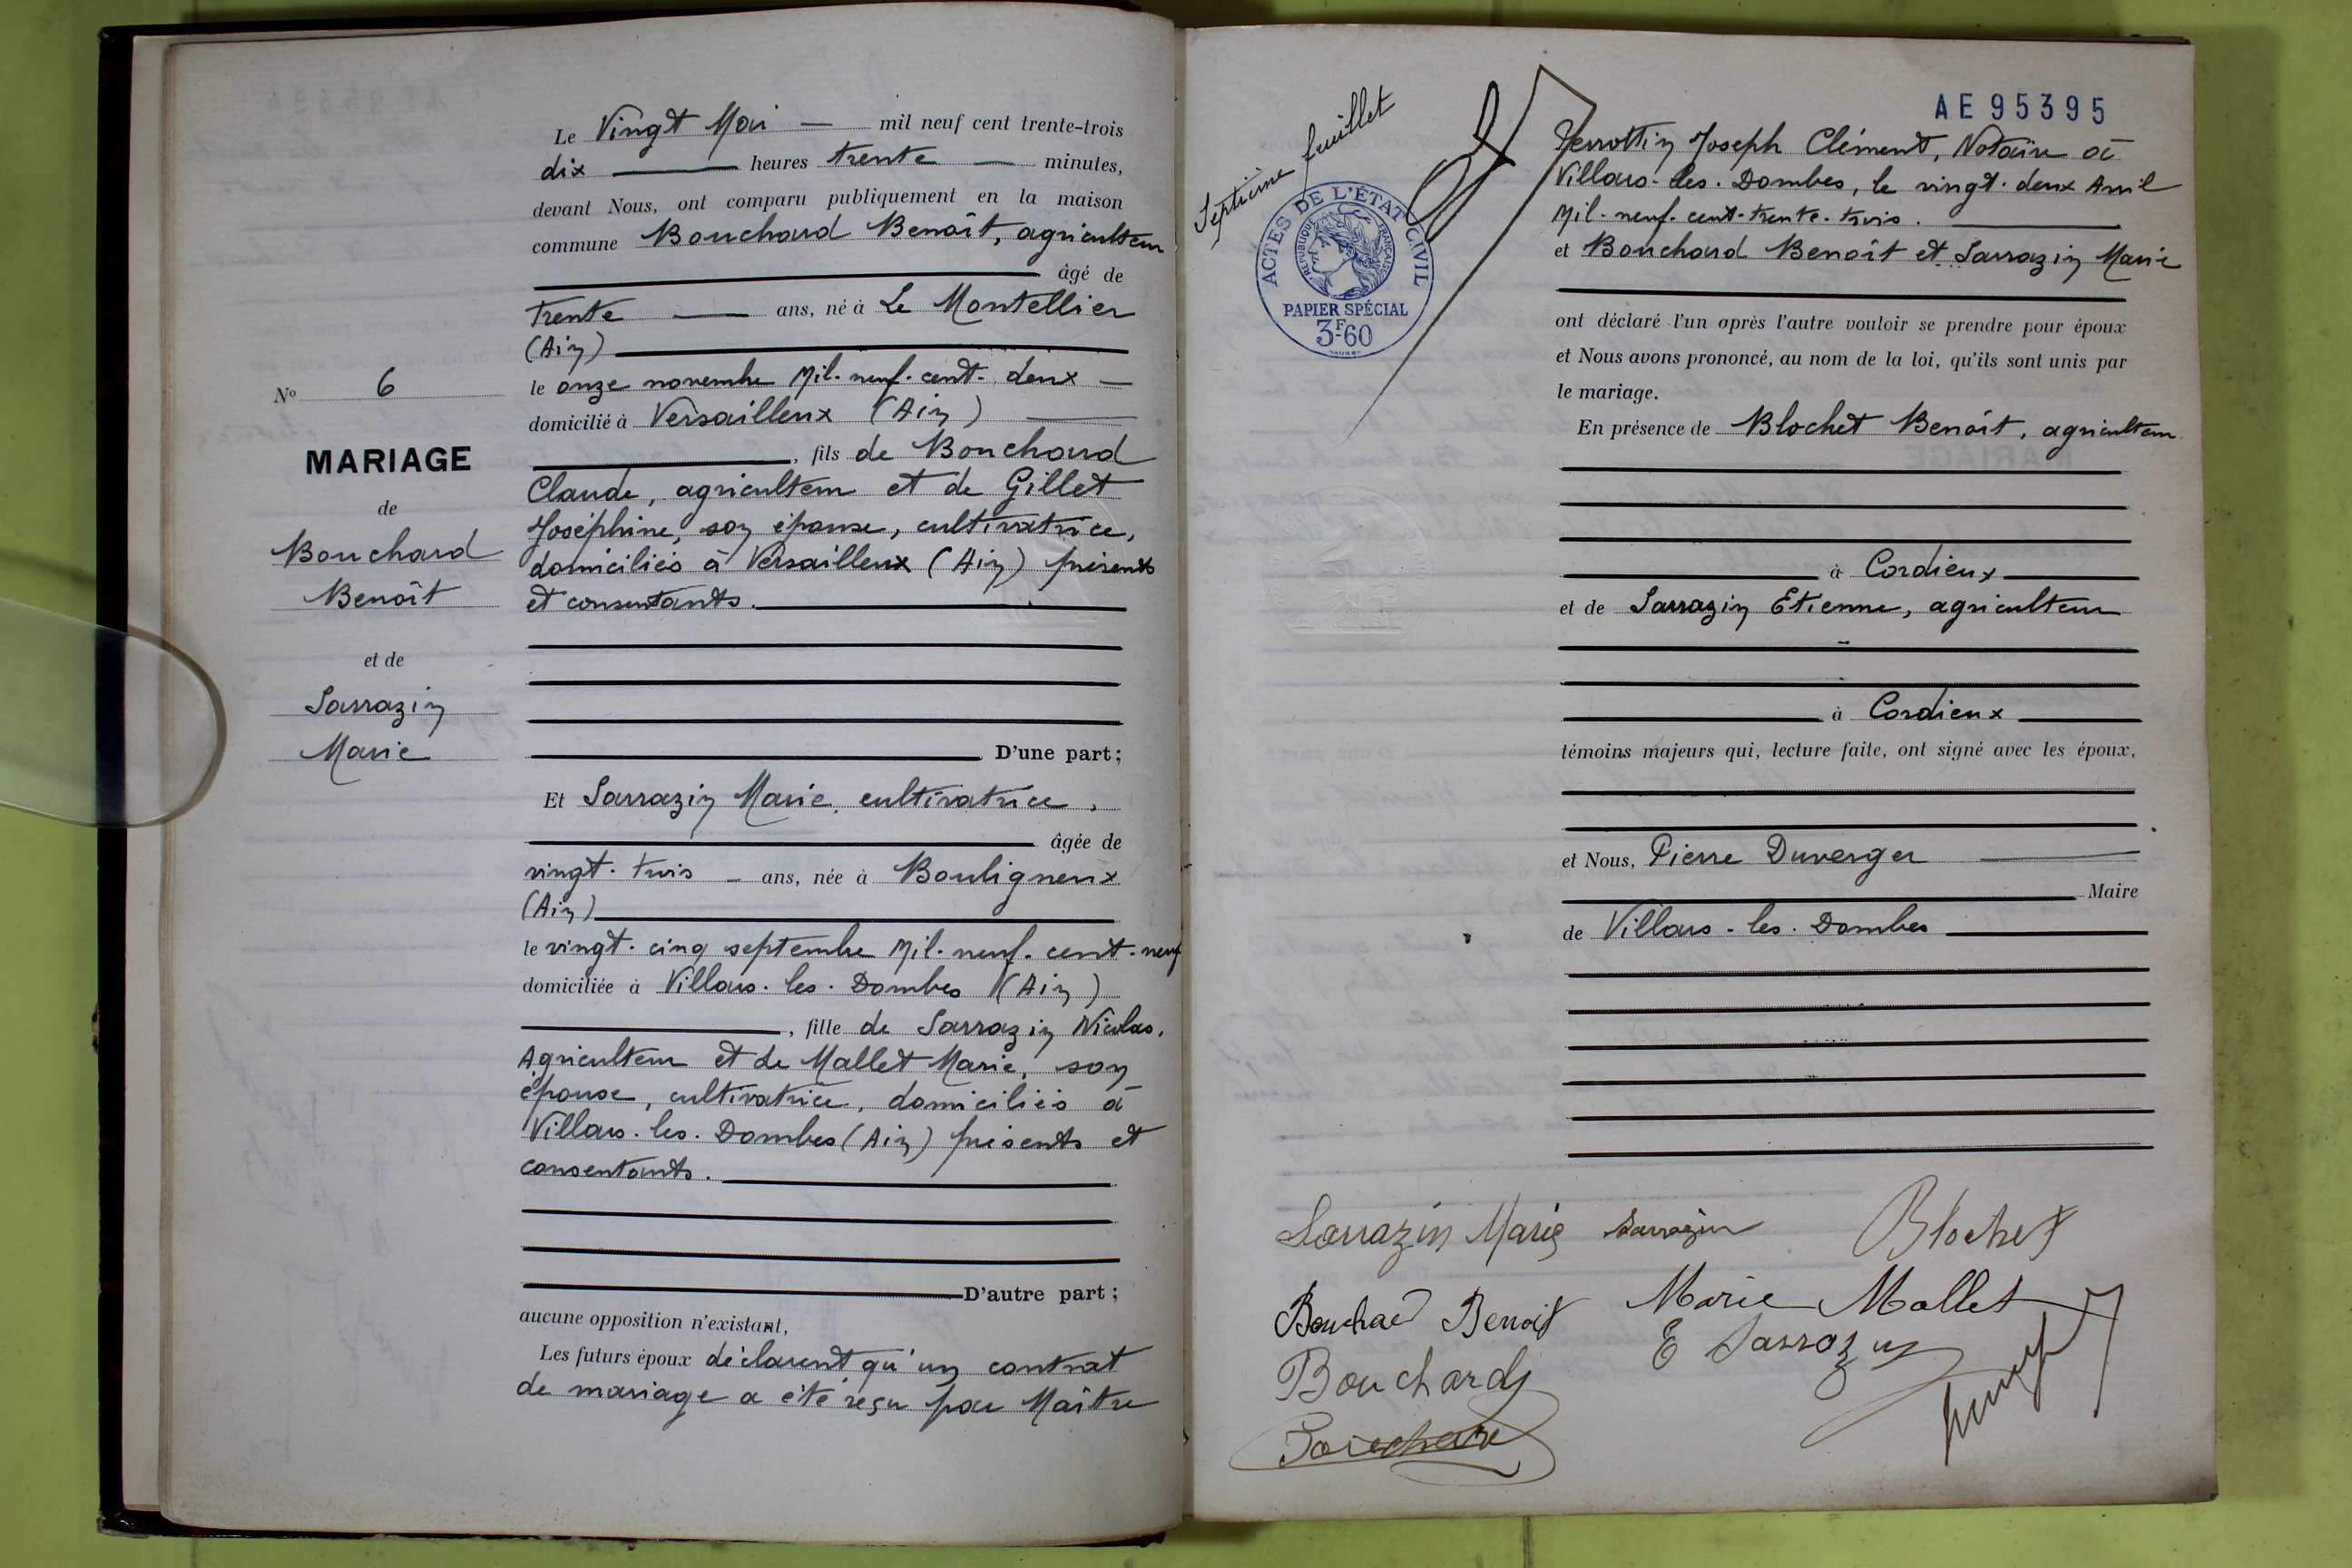 Le Vingt Mai — mil neuf cent trente-trois
dix — heures trente — minutes,
devant Nous, ont comparu publiquement en la maison
commune Bouchard Benoît, agriculteur
âgé de
trente — ans, né à Le Montellier
(Ain)
le onze novembre Mil-neuf-cent-deux —
domicilié à Versailleux (Ain)
, fils de Bouchard
Claude, agriculteur et de Gillet
Joséphine, son épouse, cultivatrice,
domiciliés à Versailleux (Ain) présents
et consentants.
D'une part ;
Nº 6
MARIAGE
de
Bouchard
Benoît
et de
Sarrazin
Marie
Et Sarrazin Marie, cultivatrice,
âgée de
vingt-trois — ans, née à Bouligneux
(Ain)
le vingt-cinq septembre Mil-neuf-cent-neuf
domiciliée à Villars-les-Dombes (Ain)
, fille de Sarrazin Nicolas,
Agriculteur et de Mallet Marie, son
épouse, cultivatrice, domiciliés à
Villars-les-Dombes (Ain) présents et
consentants.
D'autre part ;
aucune opposition n'existant,
Les futurs époux déclarent qu'un contrat
de mariage a été reçu par Maître
Septième feuillet
ACTES DE L'ÉTAT CIVIL
RÉPUBLIQUE FRANÇAISE
PAPIER SPÉCIAL
3F60
AE95395
Joseph Clément, Notaire à
Villars-les-Dombes, le vingt-deux Avril
Mil-neuf-cent-trente-trois.
et Bouchard Benoît et Sarrazin Marie
ont déclaré l'un après l'autre vouloir se prendre pour époux
et Nous avons prononcé, au nom de la loi, qu'ils sont unis par
le mariage.
En présence de Blochet Benoît, agriculteur
à Cordieux
et de Sarrazin Etienne, agriculteur
à Cordieux
témoins majeurs qui, lecture faite, ont signé avec les époux,
et Nous, Pierre Duverger
Maire
de Villars-les-Dombes
Sarrazin Marie Sarrazin Blochet
Bouchard Benoit Marie Mallet
Bouchard E Sarrazin
Bouchard